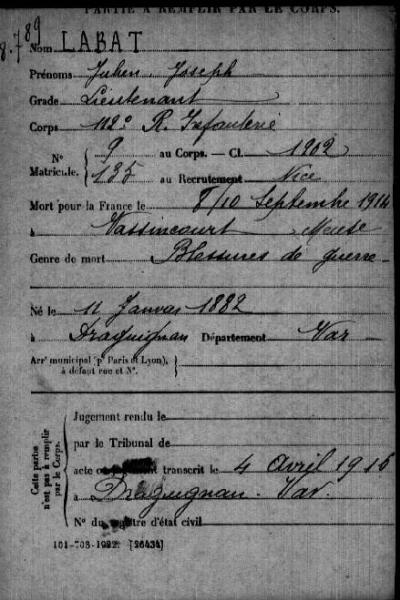 PARTIE À REMPLIR PAR LE CORPS.
8.789
Nom LABAT
Prénoms Julien Joseph
Grade Lieutenant
Corps 112e R. Infanterie
N° 9 au Corps. — Cl. 1902
Matricule. 135 au Recrutement Nice
Mort pour la France le 8/10 Septembre 1914
à Vassincourt Meuse
Genre de mort Blessures de guerre
Né le 11 Janvier 1882
à Draguignan Département Var
Arrᵗ municipal (pʳ Paris et Lyon),
à défaut rue et N°.
Cette partie
n'est pas à remplir
par le Corps.
Jugement rendu le
par le Tribunal de
acte transcrit le 4 Avril 1916
à Draguignan - Var.
N° du registre d'état civil
101-708-1922. [26434]